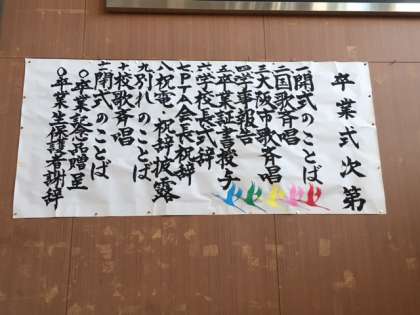 卒業式次第
一開式のことば
二国歌斉唱
三大阪市歌斉唱
四学事報告
五卒業証書授与
六学校長式辞
七PTA会長祝辞
八祝電・祝辞披露
九別れのことば
十校歌斉唱
十一閉式のことば
○卒業記念品贈呈
○卒業生保護者謝辞